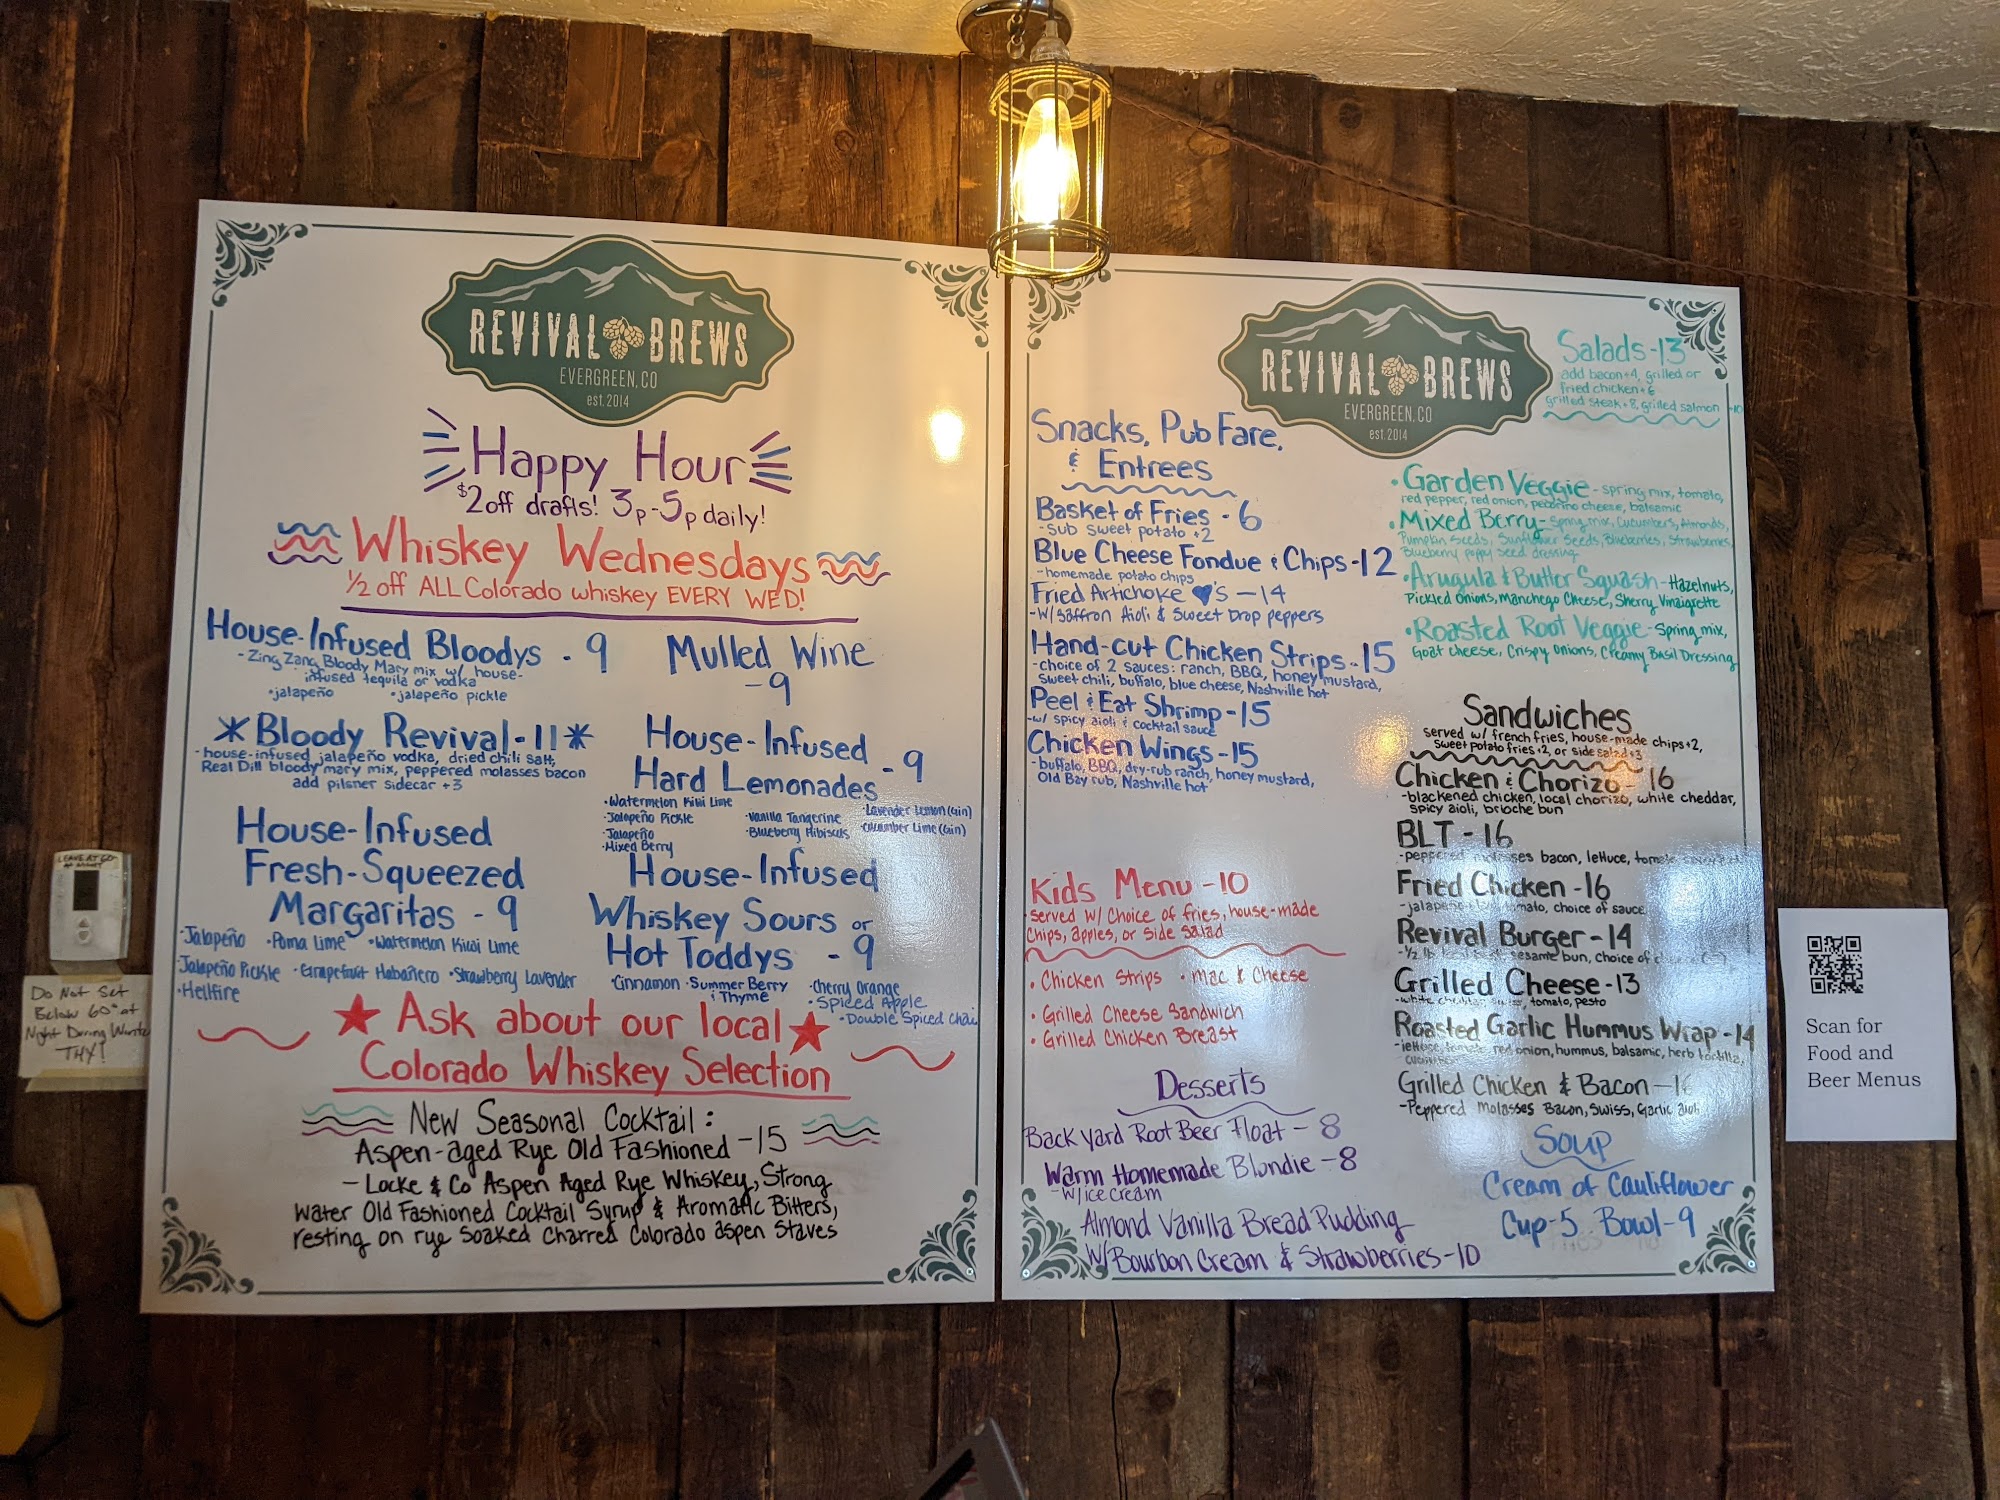 REVIVAL BREWS
EVERGREEN, CO
est. 2014
Happy Hour
$2 off drafts! 3p-5p daily!
Whiskey Wednesdays
1/2 off ALL Colorado whiskey EVERY WED!
House-Infused Bloodys - 9
- Zing Zang Bloody Mary mix w/ house-
infused tequila or vodka
•jalapeño •jalapeño pickle
Mulled Wine
- 9
*Bloody Revival - 11*
- house-infused jalapeño vodka, dried chili salt,
Real Dill bloody mary mix, peppered molasses bacon
add pilsner sidecar +3
House-Infused
Hard Lemonades - 9
•Watermelon Kiwi Lime
•Jalapeño Pickle
•Jalapeño
•Mixed Berry
•Vanilla Tangerine
•Blueberry Hibiscus
•Lavender Lemon (Gin)
•Cucumber Lime (Gin)
House-Infused
Fresh-Squeezed
Margaritas - 9
•Jalapeño •Poma Lime •Watermelon Kiwi Lime
•Jalapeño Pickle •Grapefruit Habañero •Strawberry Lavender
•Hellfire
House-Infused
Whiskey Sours or
Hot Toddys - 9
•Cinnamon •Summer Berry
& Thyme
•Cherry Orange
•Spiced Apple
•Double Spiced Chai
★ Ask about our local ★
Colorado Whiskey Selection
New Seasonal Cocktail:
Aspen-aged Rye Old Fashioned - 15
- Locke & Co Aspen Aged Rye Whiskey, Strong
Water Old Fashioned Cocktail Syrup & Aromatic Bitters,
resting on rye soaked charred Colorado aspen staves
REVIVAL BREWS
EVERGREEN, CO
est. 2014
Snacks, Pub Fare,
& Entrees
Basket of Fries - 6
- sub sweet potato +2
Blue Cheese Fondue & Chips - 12
- homemade potato chips
Fried Artichoke ♥'s - 14
- w/ Saffron Aioli & Sweet Drop peppers
Hand-cut Chicken Strips - 15
- choice of 2 sauces: ranch, BBQ, honey mustard,
sweet chili, buffalo, blue cheese, Nashville hot
Peel & Eat Shrimp - 15
- w/ spicy aioli & cocktail sauce
Chicken Wings - 15
- buffalo, BBQ, dry-rub ranch, honey mustard,
Old Bay rub, Nashville hot
Kids Menu - 10
served w/ choice of fries, house-made
chips, apples, or side salad
• Chicken Strips • Mac & Cheese
• Grilled Cheese Sandwich
• Grilled Chicken Breast
Desserts
Backyard Root Beer Float - 8
Warm Homemade Blondie - 8
- w/ ice cream
Almond Vanilla Bread Pudding
w/ Bourbon Cream & Strawberries - 10
Salads - 13
add bacon +4, grilled or
fried chicken +6
grilled steak +8, grilled salmon +10
•Garden Veggie - spring mix, tomato,
red pepper, red onion, pecorino cheese, balsamic
•Mixed Berry - Spring mix, Cucumbers, Almonds,
Pumpkin Seeds, Sunflower Seeds, Blueberries, Strawberries,
Blueberry poppy seed dressing
•Arugula & Butter Squash - Hazelnuts,
Pickled Onions, Manchego Cheese, Sherry Vinaigrette
•Roasted Root Veggie - Spring mix,
Goat cheese, Crispy Onions, Creamy Basil Dressing
Sandwiches
served w/ french fries, house-made chips +2,
sweet potato fries +2, or side salad +3
Chicken & Chorizo - 16
- blackened chicken, local chorizo, white cheddar,
spicy aioli, brioche bun
BLT - 16
- peppered molasses bacon, lettuce, tomato
Fried Chicken - 16
- jalapeño tomato, choice of sauce
Revival Burger - 14
- 1/2 lb sesame bun, choice of
Grilled Cheese - 13
- white cheddar, swiss, tomato, pesto
Roasted Garlic Hummus Wrap - 14
- lettuce, tomato, red onion, hummus, balsamic, herb tortilla,
Grilled Chicken & Bacon
- Peppered Molasses Bacon, Swiss, Garlic aioli
Soup
Cream of Cauliflower
Cup - 5 Bowl - 9
Scan for
Food and
Beer Menus
LEAVE AT 60
Do Not Set
Below 60° at
Night During Winter
THX!